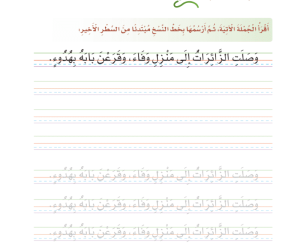 أَقْرَأُ الْجُمْلَةَ الْآتِيَةَ، ثُمَّ أَرْسُمُهَا بِخَطِّ النَّسْخِ مُبْتَدِئًا مِنَ السَّطْرِ الْأَخِيرِ:
وَصَلَتِ الزَّائِرَاتُ إِلَى مَنْزِلِ وَفَاءَ، وَقَرَعْنَ بَابَهُ بِهُدُوءٍ.
وَصَلَتِ الزَّائِرَاتُ إِلَى مَنْزِلِ وَفَاءَ، وَقَرَعْنَ بَابَهُ بِهُدُوءٍ.
وَصَلَتِ الزَّائِرَاتُ إِلَى مَنْزِلِ وَفَاءَ، وَقَرَعْنَ بَابَهُ بِهُدُوءٍ.
وَصَلَتِ الزَّائِرَاتُ إِلَى مَنْزِلِ وَفَاءَ، وَقَرَعْنَ بَابَهُ بِهُدُوءٍ.